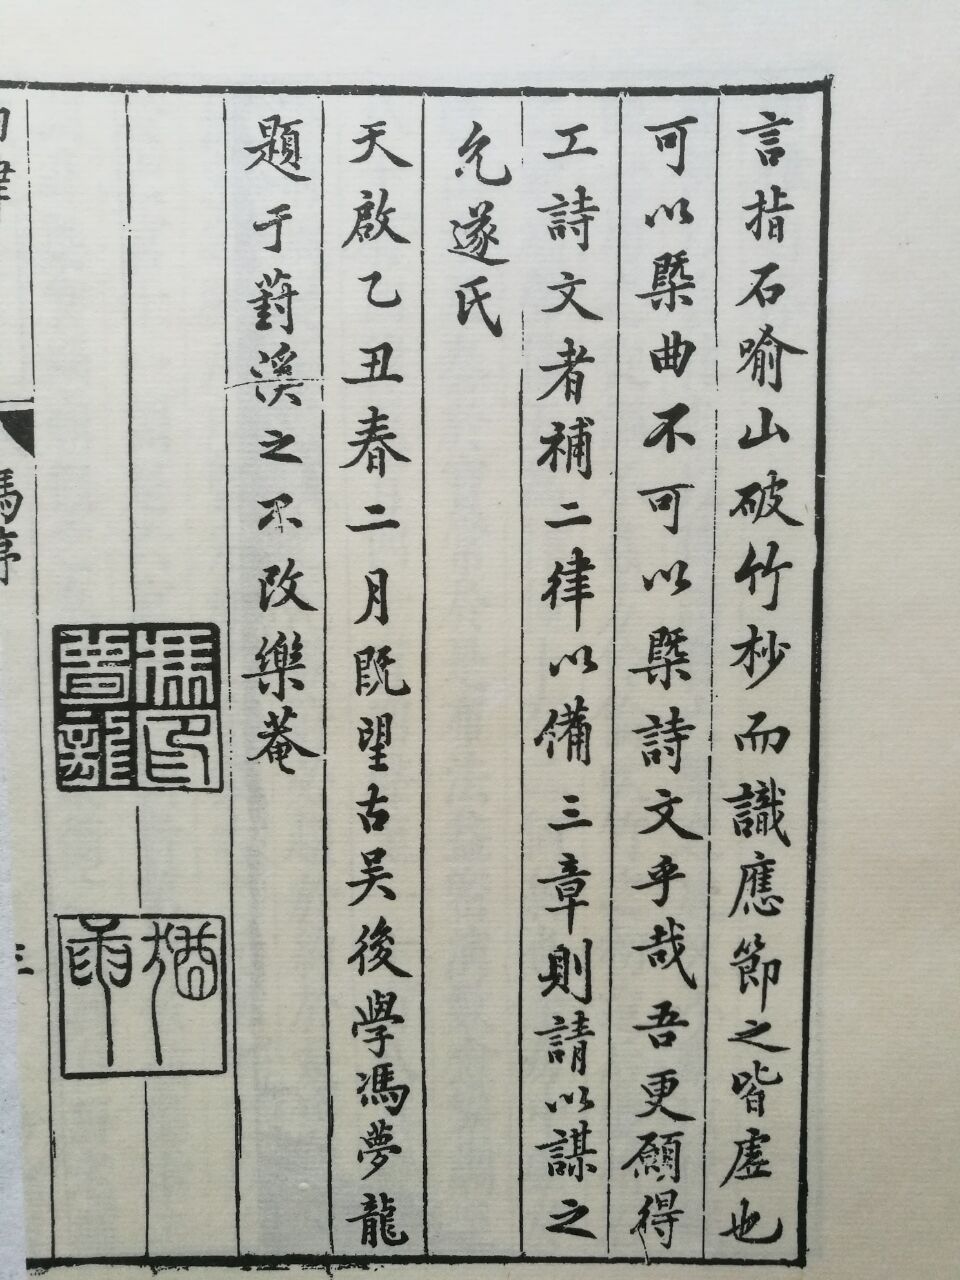 言指石喻山破竹杪而識應節之皆虛也
可以槩曲不可以槩詩文乎哉吾更願得
工詩文者補二律以備三章則請以謀之
允遂氏
天啟乙丑春二月既望古吴後學馮夢龍
題于葑溪之不改樂菴
馮序
三
馮氏夢龍
猶龍